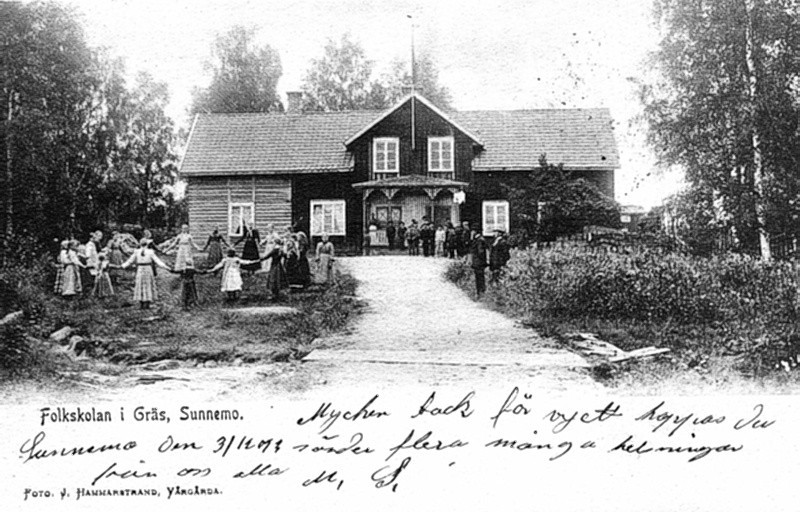 Folkskolan i Gräs, Sunnemo.
Mycken tack för vyett hoppas du
Sunnemo den sänder flera många helsningar
från oss alla M. S.
Foto. J. Hammarstrand, Vårgårda.